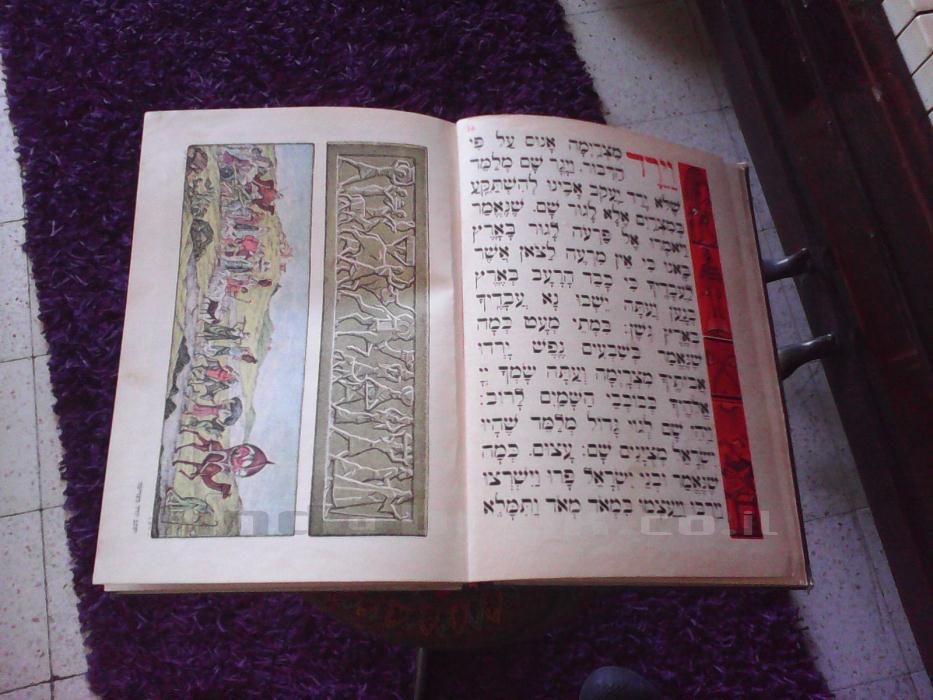 וַיֵּרֶד מִצְרַיְמָה אָנוּס עַל פִּי
הַדִּבּוּר. וַיָּגָר שָׁם מְלַמֵּד
שֶׁלֹּא יָרַד יַעֲקֹב אָבִינוּ לְהִשְׁתַּקֵּעַ
בְּמִצְרַיִם אֶלָּא לָגוּר שָׁם. שֶׁנֶּאֱמַר
וַיֹּאמְרוּ אֶל פַּרְעֹה לָגוּר בָּאָרֶץ
בָּאנוּ כִּי אֵין מִרְעֶה לַצֹּאן אֲשֶׁר
לַעֲבָדֶיךָ כִּי כָבֵד הָרָעָב בְּאֶרֶץ
כְּנָעַן וְעַתָּה יֵשְׁבוּ נָא עֲבָדֶיךָ
בְּאֶרֶץ גֹּשֶׁן: בִּמְתֵי מְעָט כְּמָה
שֶׁנֶּאֱמַר בְּשִׁבְעִים נֶפֶשׁ יָרְדוּ
אֲבוֹתֶיךָ מִצְרָיְמָה וְעַתָּה שָׂמְךָ יְיָ
אֱלֹהֶיךָ כְּכוֹכְבֵי הַשָּׁמַיִם לָרוֹב:
וַיְהִי שָׁם לְגוֹי גָּדוֹל מְלַמֵּד שֶׁהָיוּ
יִשְׂרָאֵל מְצֻיָּנִים שָׁם: עָצוּם. כְּמָה
שֶׁנֶּאֱמַר וּבְנֵי יִשְׂרָאֵל פָּרוּ וַיִּשְׁרְצוּ
וַיִּרְבּוּ וַיַּעַצְמוּ בִּמְאֹד מְאֹד וַתִּמָּלֵא